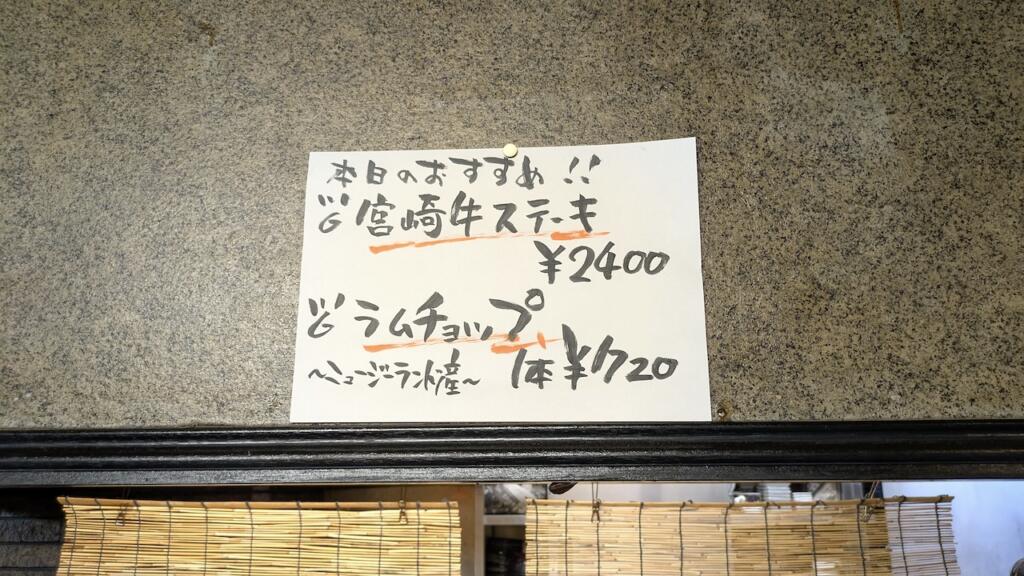 本日のおすすめ!!
宮崎牛ステーキ
¥2400
ラムチョップ
~ニュージーランド産~ 1本¥720